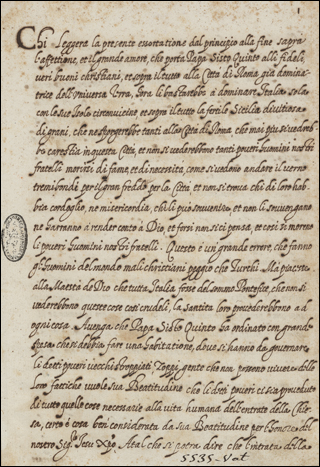 1
Chi leggera la presente exortatione dal principio alla fine sapra
l'affettione, et il grande amore, che porta Papa Sisto Quinto alli fideli,
veri buoni christiani, et sopra il tutto alla Citta di Roma già domina
trice dell'Universo Orbe, hora li bastarebbe à dominare Italia sola
con le sue Isole circumvicine, et sopra il tutto la fertile Sicilia divitiosa
di grani, che ne porgerebbe tanti alla Città di Roma, che mai più si vedereb
be carestia in questa Citta, et non si vederebbono tanti poveri huomini nostri
fratelli morirsi di fame, et di necessita, come si vedono andare il verno
tremando per il gran freddo per la Citta, et non si trova chi di loro hab
bia cordoglio, ne misericordia, chi li può sovvenire, et non li sovvengano
ne daranno à render conto à Dio, et forsi non sci si pensa, et così si moreno
li poveri huomini nostri fratelli. Questo è un grande errore, che fanno
gl'huomini del mondo mali christiani peggio che Turchi. Ma piacesse
alla Maestà de Dio che tutta Italia fosse del sommo Pontefice, che non si
vederebbono queste cose così crudeli, la santita loro provederebbono ad
ogni cosa. Avenga che Papa Sisto Quinto ha ordinato con grande
spesa che si debbia fare una habitatione, dove si hanno da governare
li detti poveri vecchi stroppiati Zoppi, gente che non possono vivere delle
loro fattiche vuole sua Beatitudine che li detti poveri ci sia proveduto
di tutto quelle cose necessarie alla vita humana dell'entrate della Chie
sa, certo è cosa ben considerata da sua Beatitudine per l'honore del
nostro Sig.r Jesu Xpo. A tal che si potra dire che l'intrata della
5535-Vat.